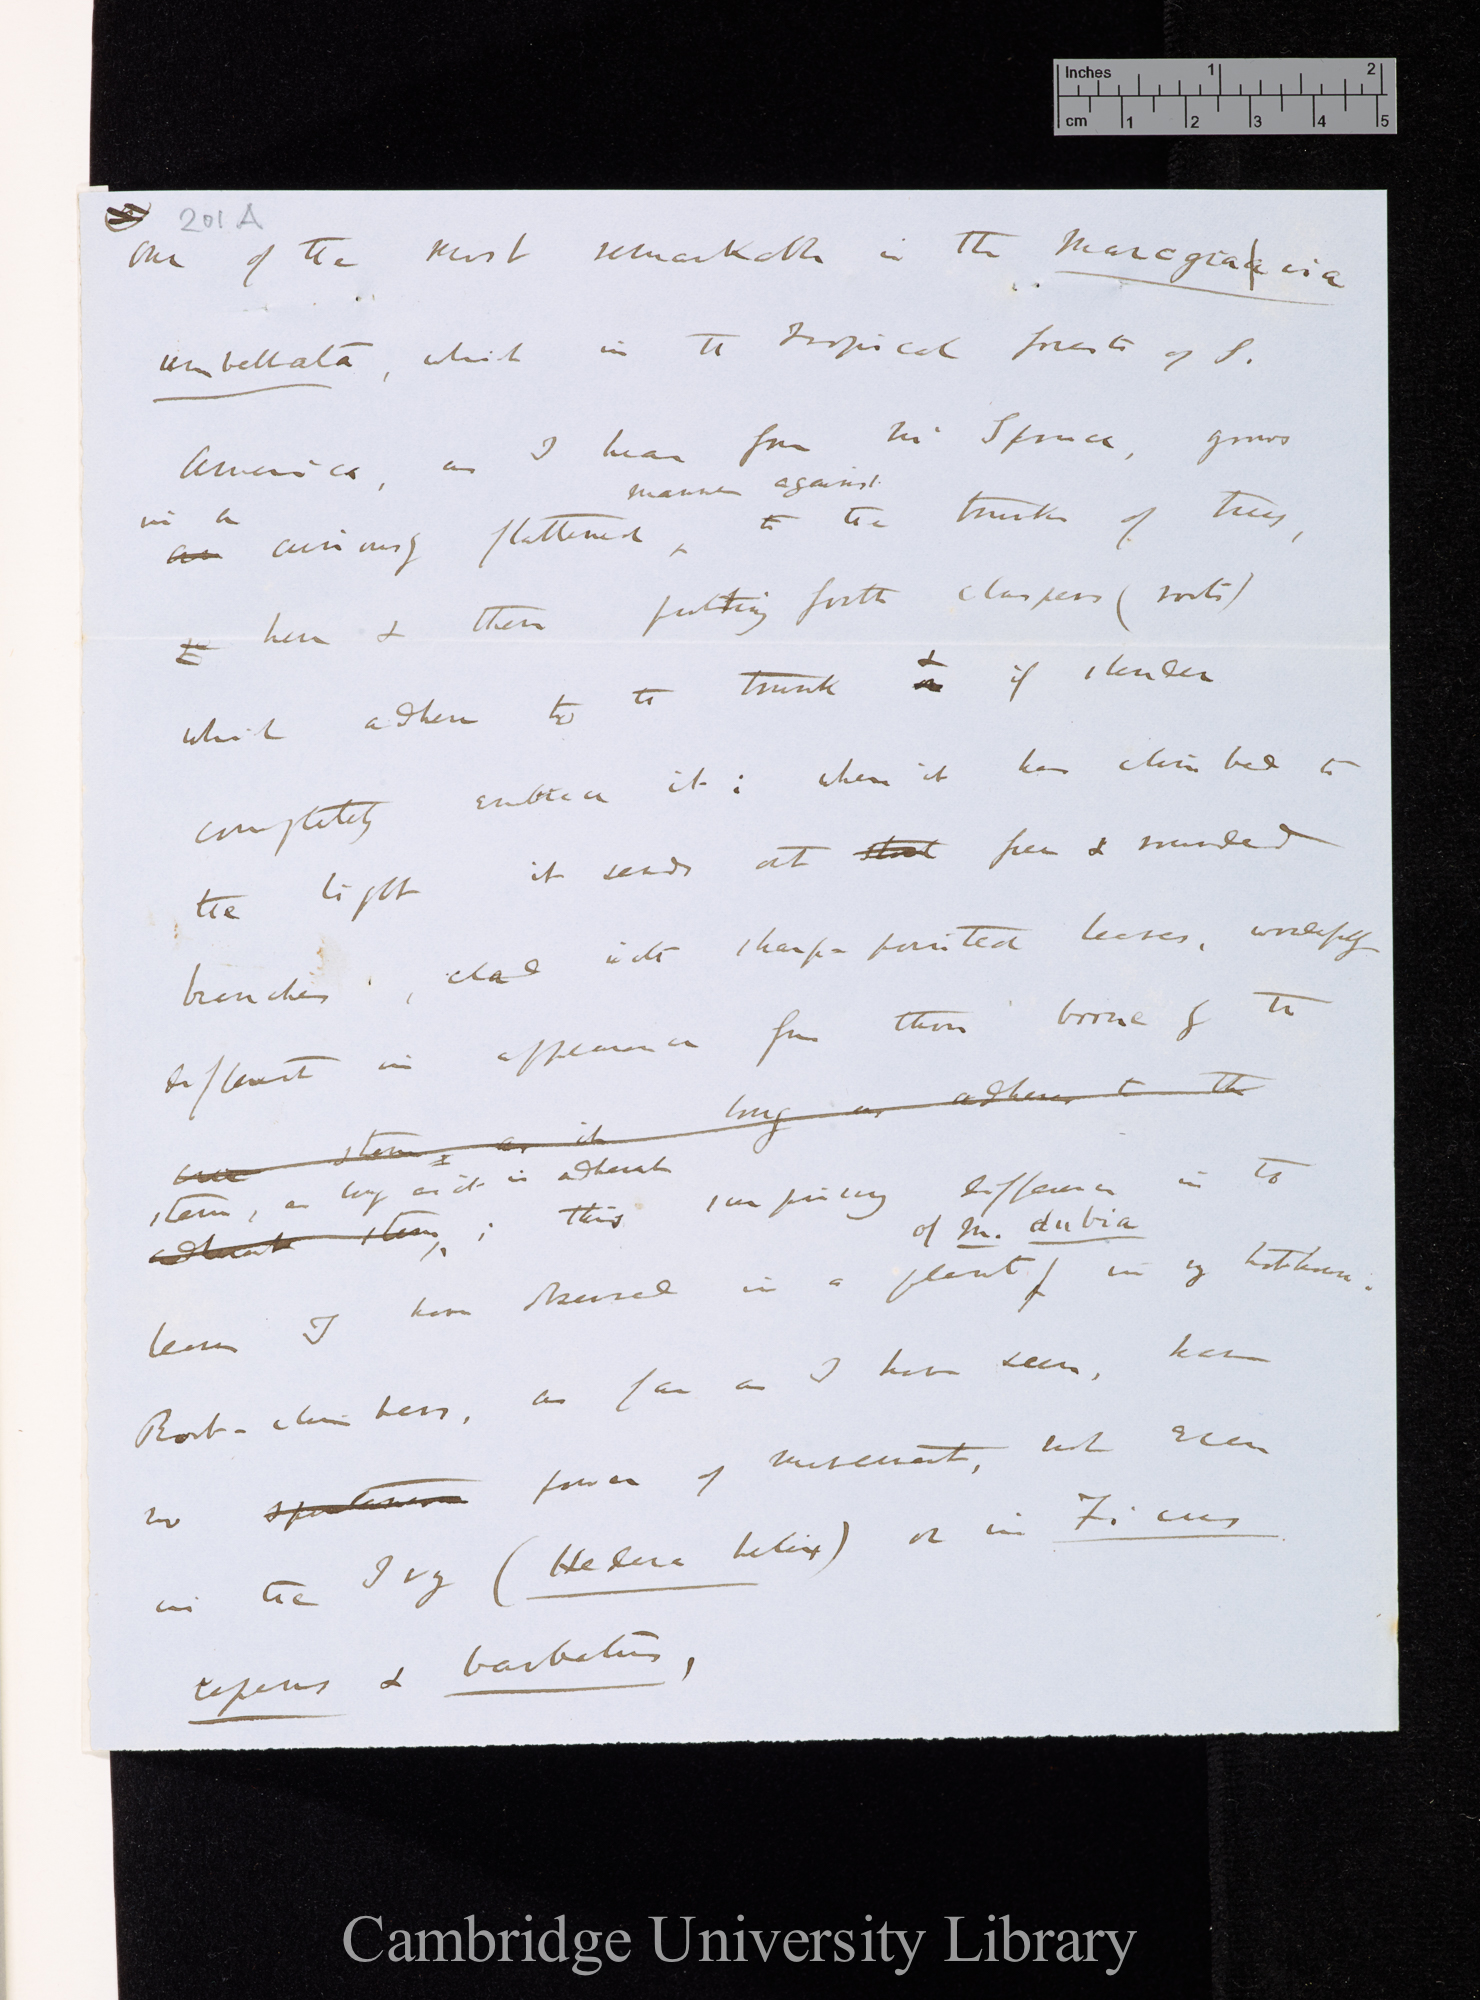 Inches 1 2
cm 1 2 3 4 5
201 A
One of the most remarkable is the Marcgraavia
umbellata, which in the tropical forests of S.
America, as I hear from Mr Spruce, grows
manner against
in a
as curiously flattened to the trunks of trees,
to here & there putting forth claspers (roots)
&
which adhere to the trunk a if slender
completely embrace it; when it has climbed to
the light it sends out stout free & rounded
branches, clad with sharp-pointed leaves, wonderfully
different in appearance from those borne by the
stem as it long as adheres to the
stem, as long as it is adherent
adherent stem; this surprising difference in the
of M. dubia
leaves I have observed in a plant in my hothouse.
Root-climbers, as far as I have seen, have
no spontaneous power of movement, not even
in the Ivy (Hedera helix) or in Ficus
repens & barbatus,
Cambridge University Library